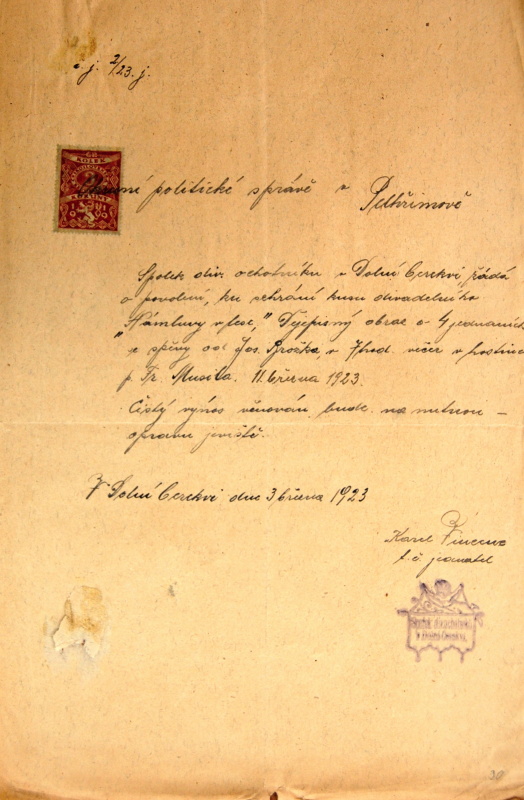 č. j. 2/23. j.
KOLEK
2
KORUNY
1919
politické správě v Pelhřimově
Spolek div. ochotníků v Dolní Cerekvi, žádá
o povolení, ku sehrání kusu divadelního
"Námluvy v lese," Dějepisný obraz o 4 jednáních
se zpěvy od Jos. Brožka v 7 hod. večer v hostinci
p. Fr. Musila. 11. března 1923.
Čistý výnos věnován bude na nutnou –
opravu jeviště.
V Dolní Cerekvi dne 3 března 1923
Karel
t. č. jednatel
Spolek div. ochotníků
v Dolní Cerekvi
30